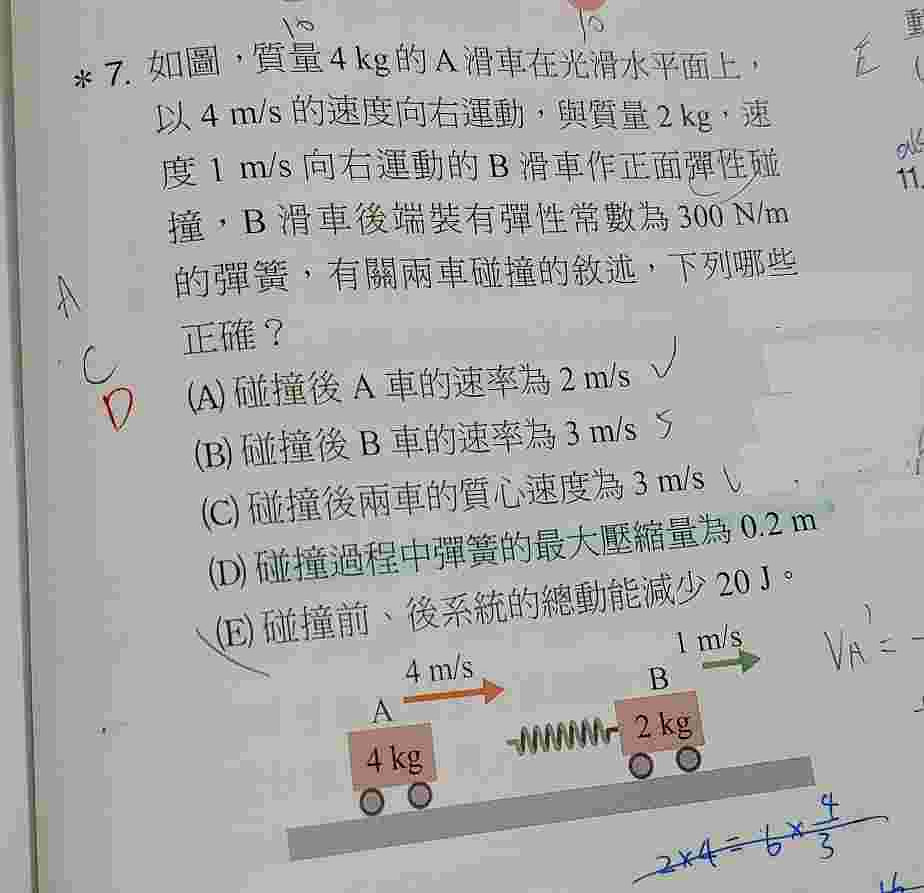 10 10
*7. 如圖，質量 4 kg 的 A 滑車在光滑水平面上，
以 4 m/s 的速度向右運動，與質量 2 kg，速
度 1 m/s 向右運動的 B 滑車作正面彈性碰
撞，B 滑車後端裝有彈性常數為 300 N/m
的彈簧，有關兩車碰撞的敘述，下列哪些
正確？
(A) 碰撞後 A 車的速率為 2 m/s
(B) 碰撞後 B 車的速率為 3 m/s 5
(C) 碰撞後兩車的質心速度為 3 m/s
(D) 碰撞過程中彈簧的最大壓縮量為 0.2 m
(E) 碰撞前、後系統的總動能減少 20 J。
A
C
D
E
11.
4 m/s
1 m/s
A
B
4 kg
2 kg
VA' =
2×4=6×4/3